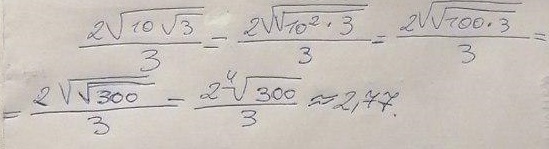 2√(10√3)/3 = 2√√(10²·3)/3 = 2√√(100·3)/3 =
= 2√√300/3 = 2⁴√300/3 ≈ 2,77.